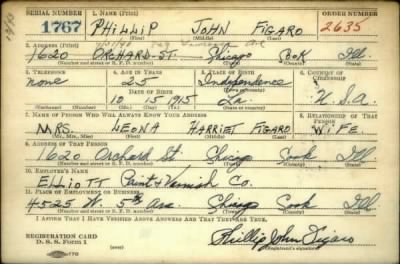 SERIAL NUMBER 1. NAME (Print) ORDER NUMBER
1767 PHILLIP JOHN FIGARO 2635
(First) (Middle) (Last)
2. ADDRESS (Print)
1620 ORCHARD-ST. Chicago Cook Ill.
(Number and street or R. F. D. number) (Town) (County) (State)
3. TELEPHONE 4. AGE IN YEARS 5. PLACE OF BIRTH 6. COUNTRY OF CITIZENSHIP
none 25 Independence
DATE OF BIRTH
10 15 1915 La. U.S.A.
(Exchange) (No.) (Mo.) (Day) (Yr.) (State or country)
7. NAME OF PERSON WHO WILL ALWAYS KNOW YOUR ADDRESS 8. RELATIONSHIP OF THAT PERSON
MRS. LEONA HARRIET FIGARO WIFE
(Mr., Mrs., Miss) (First) (Middle) (Last)
9. ADDRESS OF THAT PERSON
1620 Orchard St Chicago Cook Ill.
(Number and street or R. F. D. number) (Town) (County) (State)
10. EMPLOYER'S NAME
ELLIOTT Paint & Varnish Co.
11. PLACE OF EMPLOYMENT OR BUSINESS
4525 W. 5th Ave. Chicago Cook Ill.
(Number and street or R. F. D. number) (Town) (County) (State)
I AFFIRM THAT I HAVE VERIFIED ABOVE ANSWERS AND THAT THEY ARE TRUE.
REGISTRATION CARD
D. S. S. Form 1 Phillip John Figaro
(Registrant's signature)